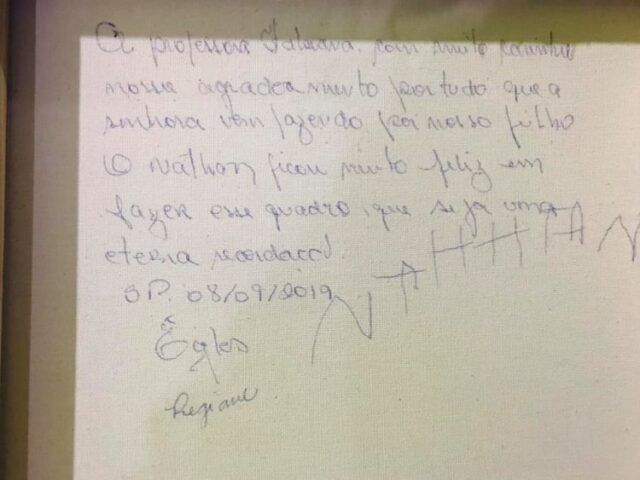 A professora Fabiana, com muito carinho
nosso agradecimento por tudo que a
senhora vem fazendo por nosso filho
O Nathan ficou muito feliz em
fazer esse quadro, que seja uma
eterna recordacão
SP. 08/09/2019
NATHHAN
Regiane